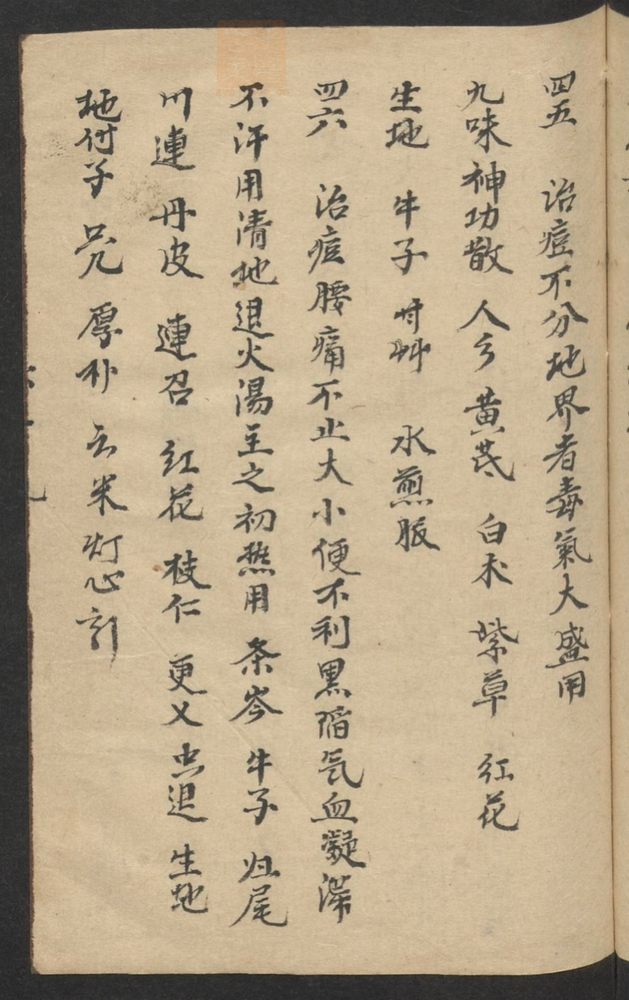 四五 治痘不分地界者毒氣大盛用
九味神功散 人參 黃芪 白术 紫草 紅花
生地 牛子 甘艸 水煎服
四六 治痘腰痛不止大小便不利黑陷氣血凝滯
不汗用清地退火湯主之初熱用 条岑 牛子 归尾
川連 丹皮 連召 紅花 枝仁 更乂 虫退 生地
地付子 只壳 厚朴 云米灯心引